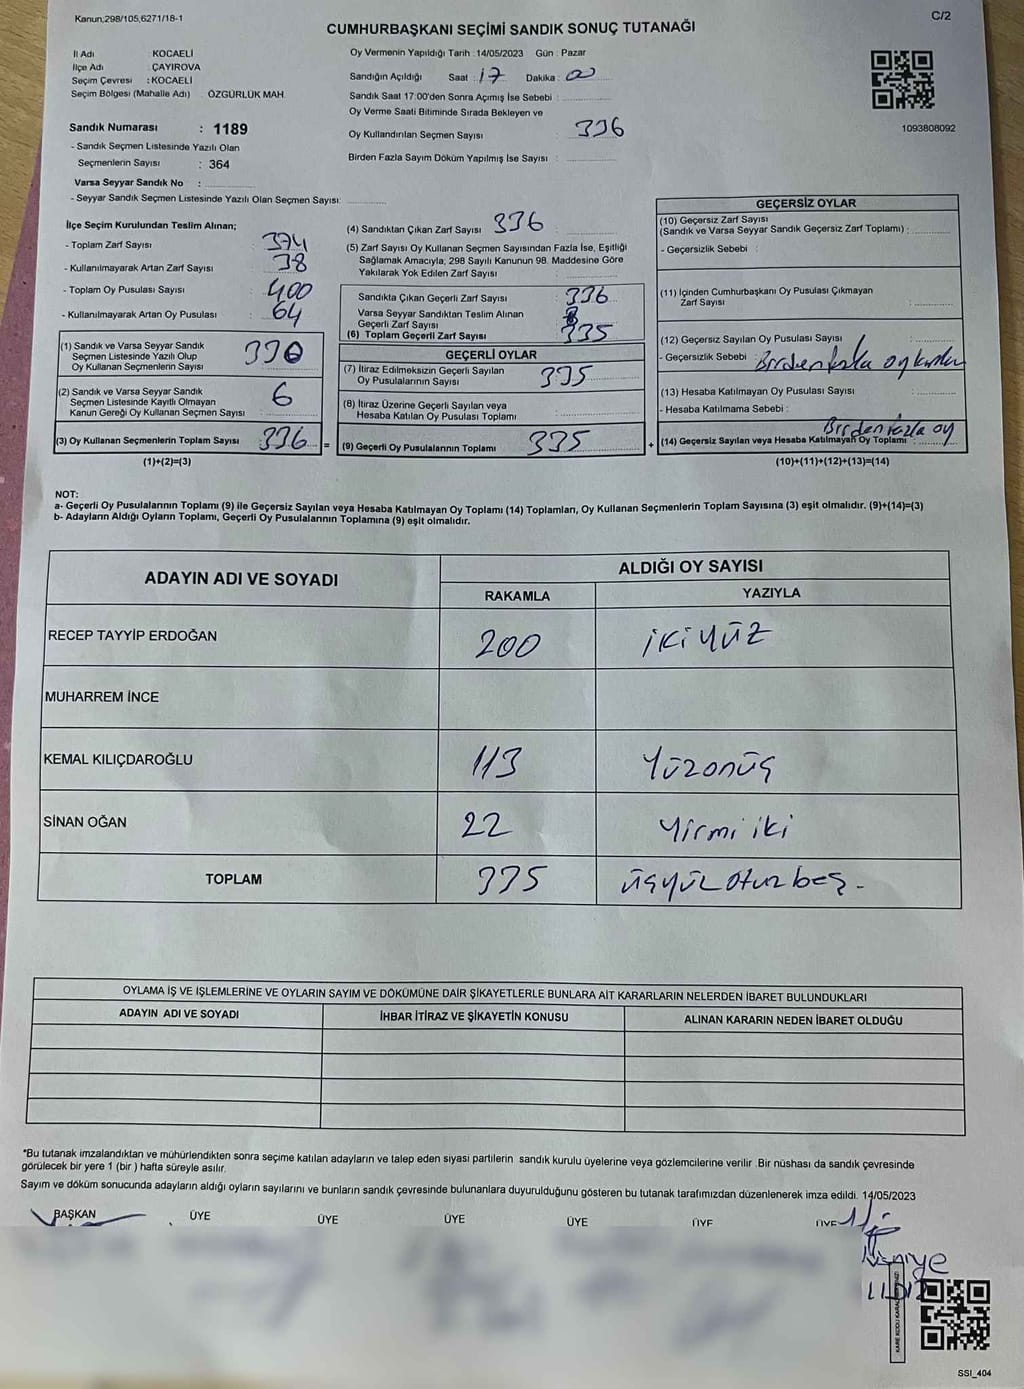 Kanun,298/105,6271/18-1
C/2
CUMHURBAŞKANI SEÇİMİ SANDIK SONUÇ TUTANAĞI
İl Adı KOCAELİ
İlçe Adı : ÇAYIROVA
Seçim Çevresi : KOCAELİ
Seçim Bölgesi (Mahalle Adı) ÖZGÜRLÜK MAH.
Oy Vermenin Yapıldığı Tarih : 14/05/2023 Gün : Pazar
Sandığın Açıldığı Saat : 17 Dakika : 00
Sandık Saat 17:00'den Sonra Açımış İse Sebebi :
Oy Verme Saati Bitiminde Sırada Bekleyen ve
Oy Kullandırılan Seçmen Sayısı 336
Birden Fazla Sayım Döküm Yapılmış İse Sayısı :
1093808092
Sandık Numarası : 1189
- Sandık Seçmen Listesinde Yazılı Olan
Seçmenlerin Sayısı : 364
Varsa Seyyar Sandık No :
- Seyyar Sandık Seçmen Listesinde Yazılı Olan Seçmen Sayısı:
İlçe Seçim Kurulundan Teslim Alınan;
- Toplam Zarf Sayısı : 374
- Kullanılmayarak Artan Zarf Sayısı : 38
- Toplam Oy Pusulası Sayısı : 400
- Kullanılmayarak Artan Oy Pusulası : 64
(1) Sandık ve Varsa Seyyar Sandık
Seçmen Listesinde Yazılı Olup
Oy Kullanan Seçmenlerin Sayısı 330
(2) Sandık ve Varsa Seyyar Sandık
Seçmen Listesinde Kayıtlı Olmayan
Kanun Gereği Oy Kullanan Seçmen Sayısı : 6
(3) Oy Kullanan Seçmenlerin Toplam Sayısı : 336 =
(1)+(2)=(3)
(4) Sandıktan Çıkan Zarf Sayısı : 336
(5) Zarf Sayısı Oy Kullanan Seçmen Sayısından Fazla İse, Eşitliği
Sağlamak Amacıyla; 298 Sayılı Kanunun 98. Maddesine Göre
Yakılarak Yok Edilen Zarf Sayısı :
Sandıkta Çıkan Geçerli Zarf Sayısı : 336
Varsa Seyyar Sandıktan Teslim Alınan
Geçerli Zarf Sayısı
(6) Toplam Geçerli Zarf Sayısı : 335
GEÇERLİ OYLAR
(7) İtiraz Edilmeksizin Geçerli Sayılan
Oy Pusulalarının Sayısı : 335
(8) İtiraz Üzerine Geçerli Sayılan veya
Hesaba Katılan Oy Pusulası Toplamı :
(9) Geçerli Oy Pusulalarının Toplamı : 335 +
GEÇERSİZ OYLAR
(10) Geçersiz Zarf Sayısı
(Sandık ve Varsa Seyyar Sandık Geçersiz Zarf Toplamı) :
- Geçersizlik Sebebi :
(11) İçinden Cumhurbaşkanı Oy Pusulası Çıkmayan
Zarf Sayısı :
(12) Geçersiz Sayılan Oy Pusulası Sayısı : 1
- Geçersizlik Sebebi : Birden fazla oy
(13) Hesaba Katılmayan Oy Pusulası Sayısı :
- Hesaba Katılmama Sebebi :
Birden fazla oy
(14) Geçersiz Sayılan veya Hesaba Katılmayan Oy Toplamı :
(10)+(11)+(12)+(13)=(14)
NOT:
a- Geçerli Oy Pusulalarının Toplamı (9) ile Geçersiz Sayılan veya Hesaba Katılmayan Oy Toplamı (14) Toplamları, Oy Kullanan Seçmenlerin Toplam Sayısına (3) eşit olmalıdır. (9)+(14)=(3)
b- Adayların Aldığı Oyların Toplamı, Geçerli Oy Pusulalarının Toplamına (9) eşit olmalıdır.
ADAYIN ADI VE SOYADI ALDIĞI OY SAYISI
RAKAMLA YAZIYLA
RECEP TAYYİP ERDOĞAN 200 iki yüz
MUHARREM İNCE
KEMAL KILIÇDAROĞLU 113 Yüzonüç
SİNAN OĞAN 22 Yirmi iki
TOPLAM 335 üçyüz otuz beş -
OYLAMA İŞ VE İŞLEMLERİNE VE OYLARIN SAYIM VE DÖKÜMÜNE DAİR ŞİKAYETLERLE BUNLARA AİT KARARLARIN NELERDEN İBARET BULUNDUKLARI
ADAYIN ADI VE SOYADI İHBAR İTİRAZ VE ŞİKAYETİN KONUSU ALINAN KARARIN NEDEN İBARET OLDUĞU
*Bu tutanak imzalandıktan ve mühürlendikten sonra seçime katılan adayların ve talep eden siyasi partilerin sandık kurulu üyelerine veya gözlemcilerine verilir .Bir nüshası da sandık çevresinde
görülecek bir yere 1 (bir ) hafta süreyle asılır.
Sayım ve döküm sonucunda adayların aldığı oyların sayılarını ve bunların sandık çevresinde bulunanlara duyurulduğunu gösteren bu tutanak tarafımızdan düzenlenerek imza edildi. 14/05/2023
BAŞKAN ÜYE ÜYE ÜYE ÜYE ÜYE ÜYE
SSI_404